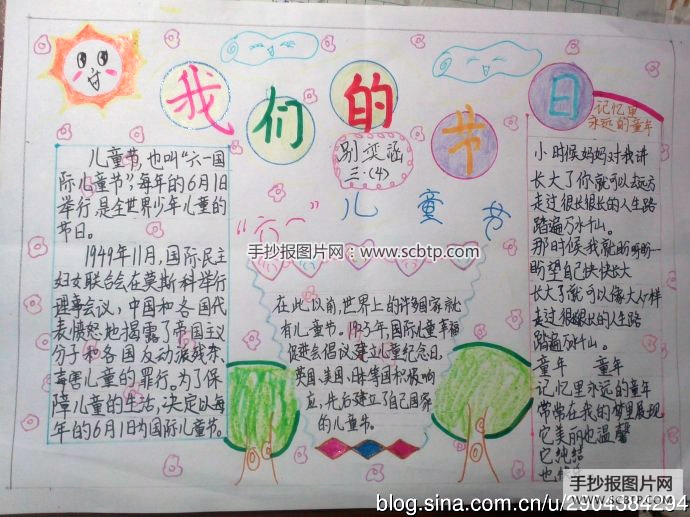 我们的节日
别奕涵
三·(4)
"六一"儿童节
儿童节,也叫“六一国
际儿童节”,每年的6月1日
举行,是全世界少年儿童的
节日。
1949年11月,国际民主
妇女联合会在莫斯科举行
理事会议,中国和各国代
表愤怒地揭露了帝国主义
分子和各国反动派残杀、
毒害儿童的罪行。为了保
障儿童的生活,决定以每
年的6月1日为国际儿童节。
在此以前,世界上的许多国家就
有儿童节。1925年,国际儿童幸福
促进会倡议建立儿童纪念日。
英国、美国、日本等国积极响
应,先后建立了自己国家
的儿童节。
记忆里
永远的童年
小时候妈妈对我讲
长大了你就可以去远方
走过很长很长的人生路
踏遍万水千山。
那时候我就盼呀盼
盼望自己快快长大
长大了就可以像大人一样
走过很长很长的人生路
踏遍万水千山。
童年 童年
记忆里永远的童年
常常在我的梦里展现
它美丽也温馨
它纯洁
也
手抄报图片网:www.scbtp.com
手抄报图片网
www.scbtp.com
手抄报图片网
WWW.SCBTP.COM
blog.sina.com.cn/u/2904384294